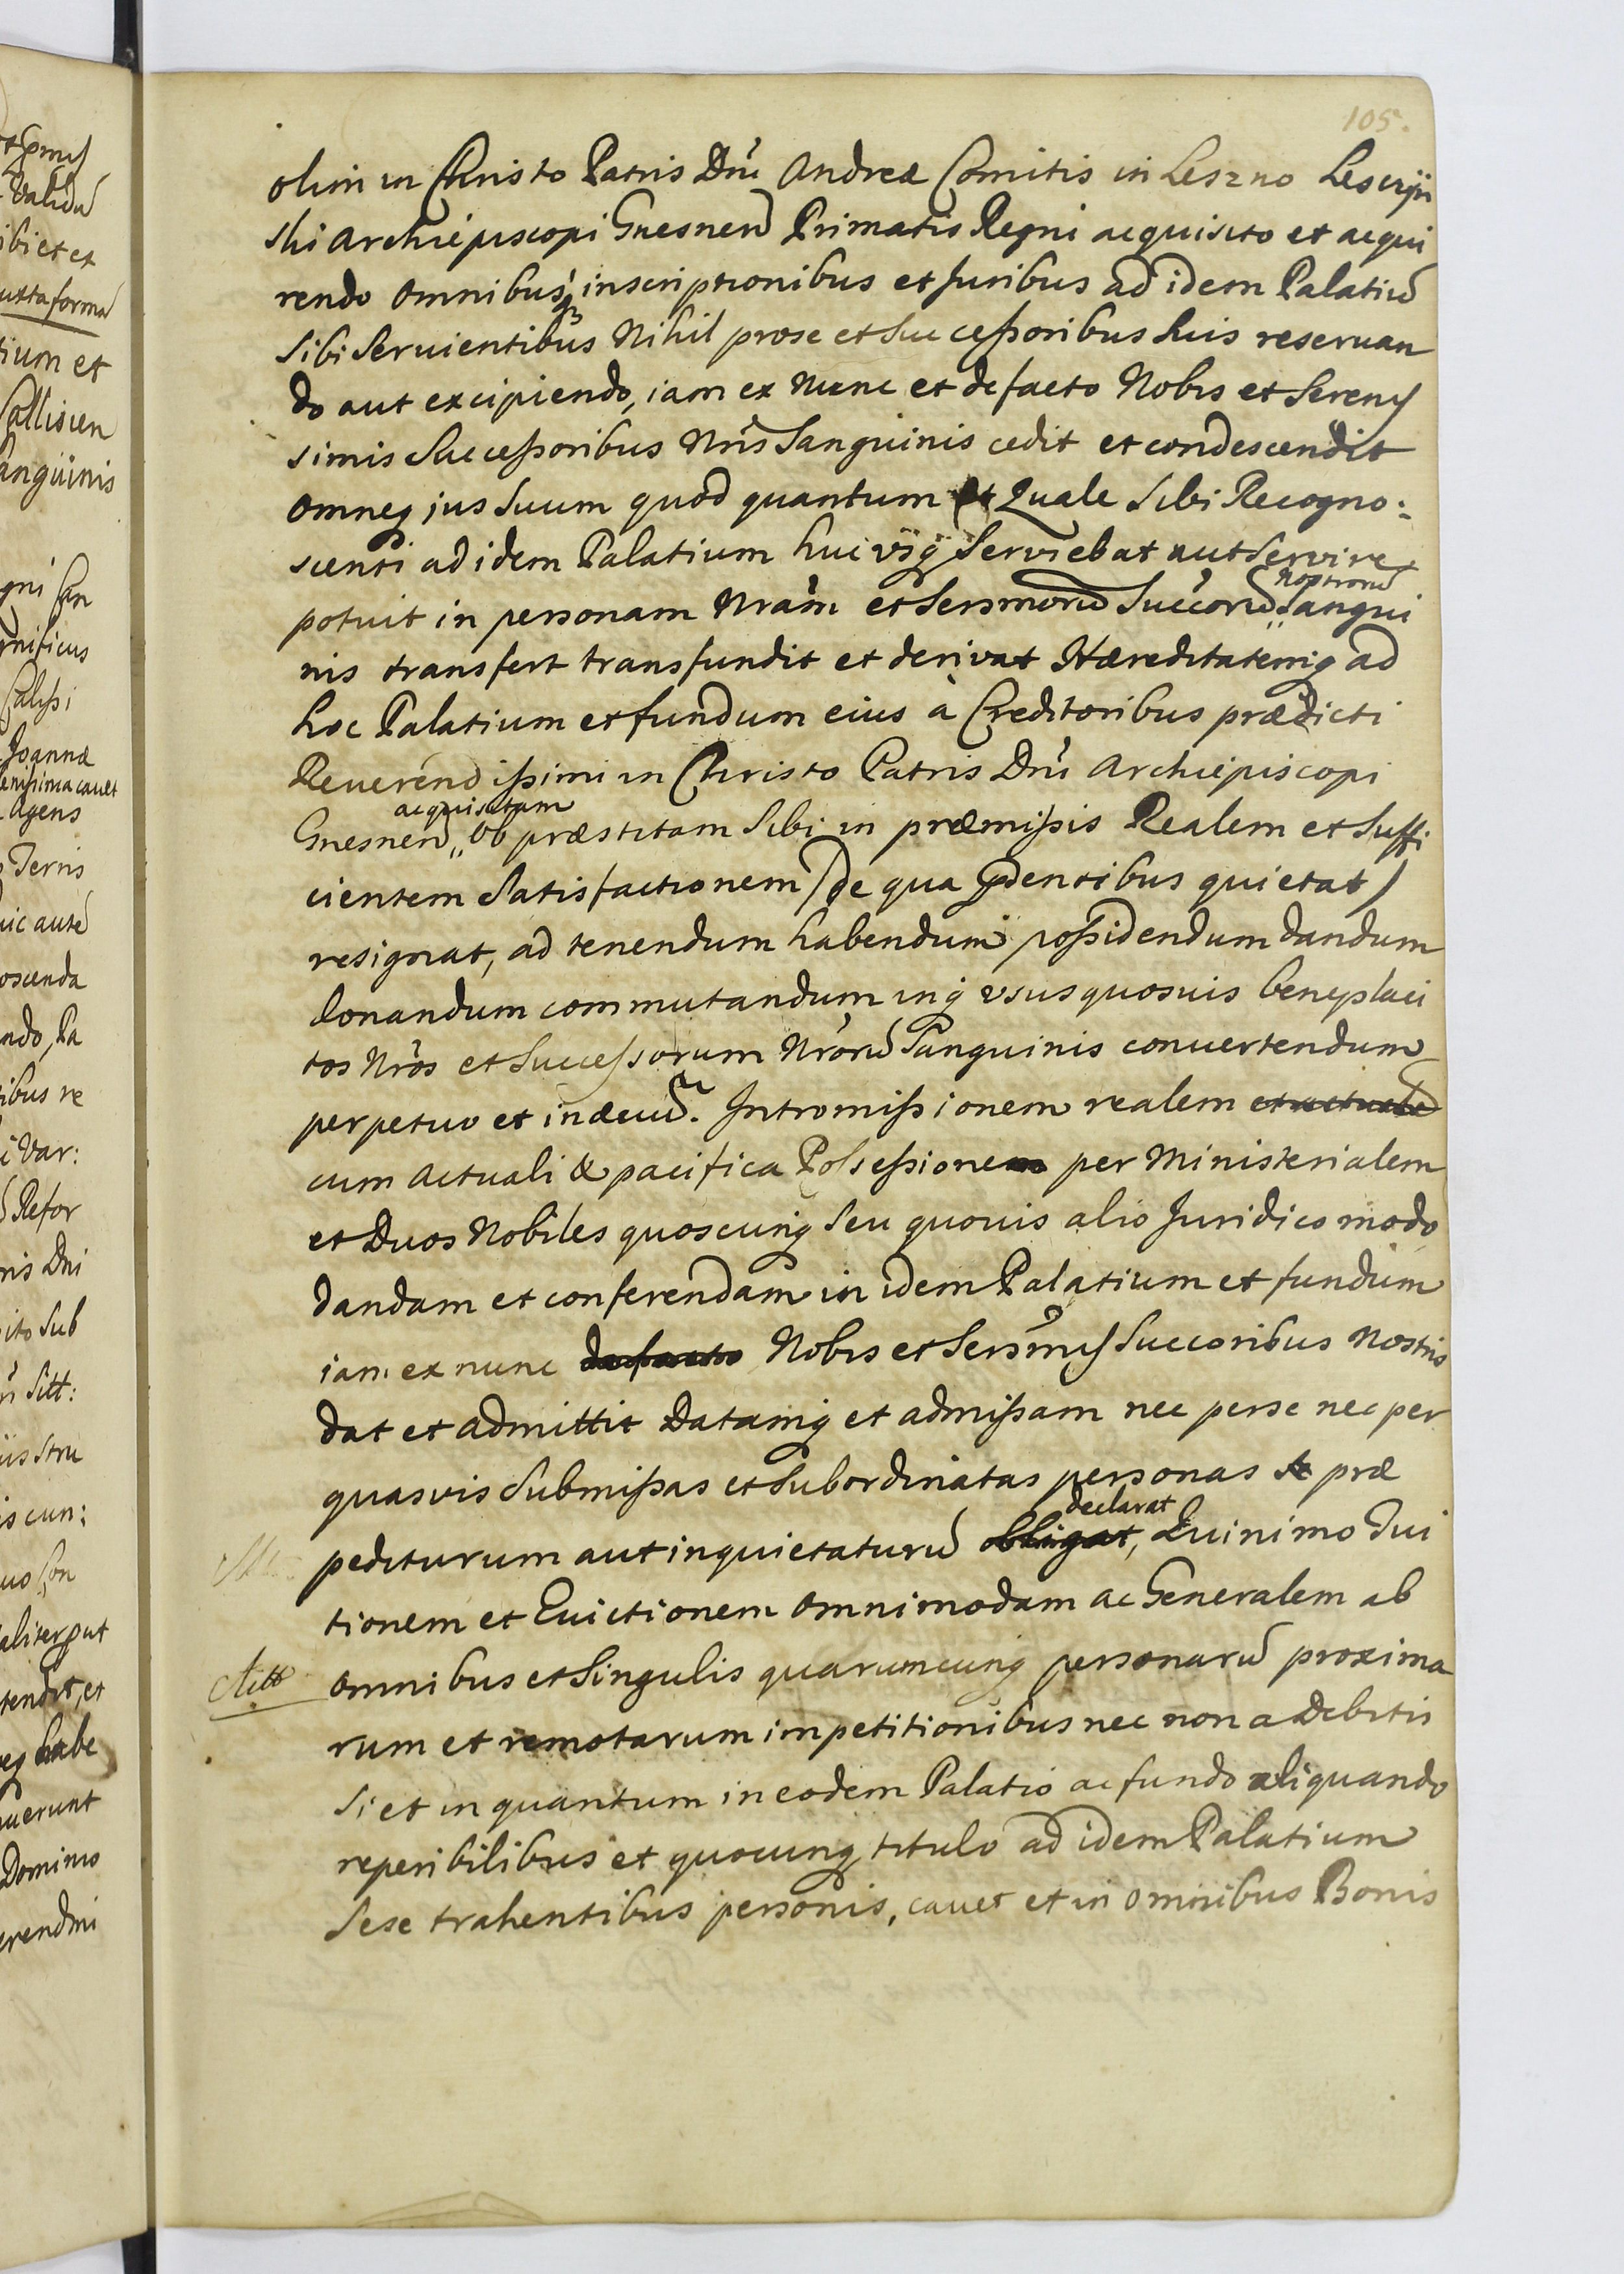 105.
olim in Christo Patris Dni Andreæ Comitis in Leszno Lesczÿn
ski Archiepiscopi Gnesnen Primatis Regni acquisito et acqui
rendo omnibusq inscriptionibus et Juribus ad idem Palatiũ
sibi Servientibus Nihil prose et Successoribus suis reservan
do aut excipiendo, iam ex nunc et defacto Nobis et Serenis
simis Successoribus Nris Sanguinis cedit et condescendit
omneq jus suum quod quantum et Quale sibi Recogno:
scenti ad idem Palatium huc vsq Serviebat aut Servire
nostrorũ
potuit in personam Nram et Sersmorũ Succorũ Sangui
nis transfert transfundit et derivat Hæreditatemq ad
hoc Palatium et fundum eius à Creditoribus prædicti
Reverendissimi in Christo Patris Dni Archiepiscopi
acquisitam
Gnesnen, ob præstitam Sibi in præmissis Realem et Suffi
cientem Satisfactionem (de qua præsentibus quietat)
resignat, ad tenendum habendum possidendum dandum
donandum commutandum inq vsus quosvis beneplaci
tos Nros et Successorum Nrorũ Sanguinis convertendum
perpetuo et in ævũ. Intromissionem realem et actualẽ
cum actuali & pacifica Possessione per Ministerialem
et Duos Nobiles quoscunq seu quovis alio Juridico modo
dandam et conferendam in idem Palatium et fundum
iam ex nunc defacto Nobis et Sersmis Succoribus Nostris
dat et admittit Datamq et admissam nec perse nec per
quasvis Submissas et Subordinatas personas se præ
declarat
pediturum aut inquietaturũ obligat, Quinimo Tui
tionem et Evictionem omnimodam ac Generalem ab
omnibus et Singulis quarumcunq personarũ proxima
rum et remotarum impetitionibus nec non a Debitis
si et in quantum in eodem Palatio ac fundo aliquando
reperibilibus et quocunq titulo ad idem Palatium
sese trahentibus personis, cavet et in omnibus Bonis